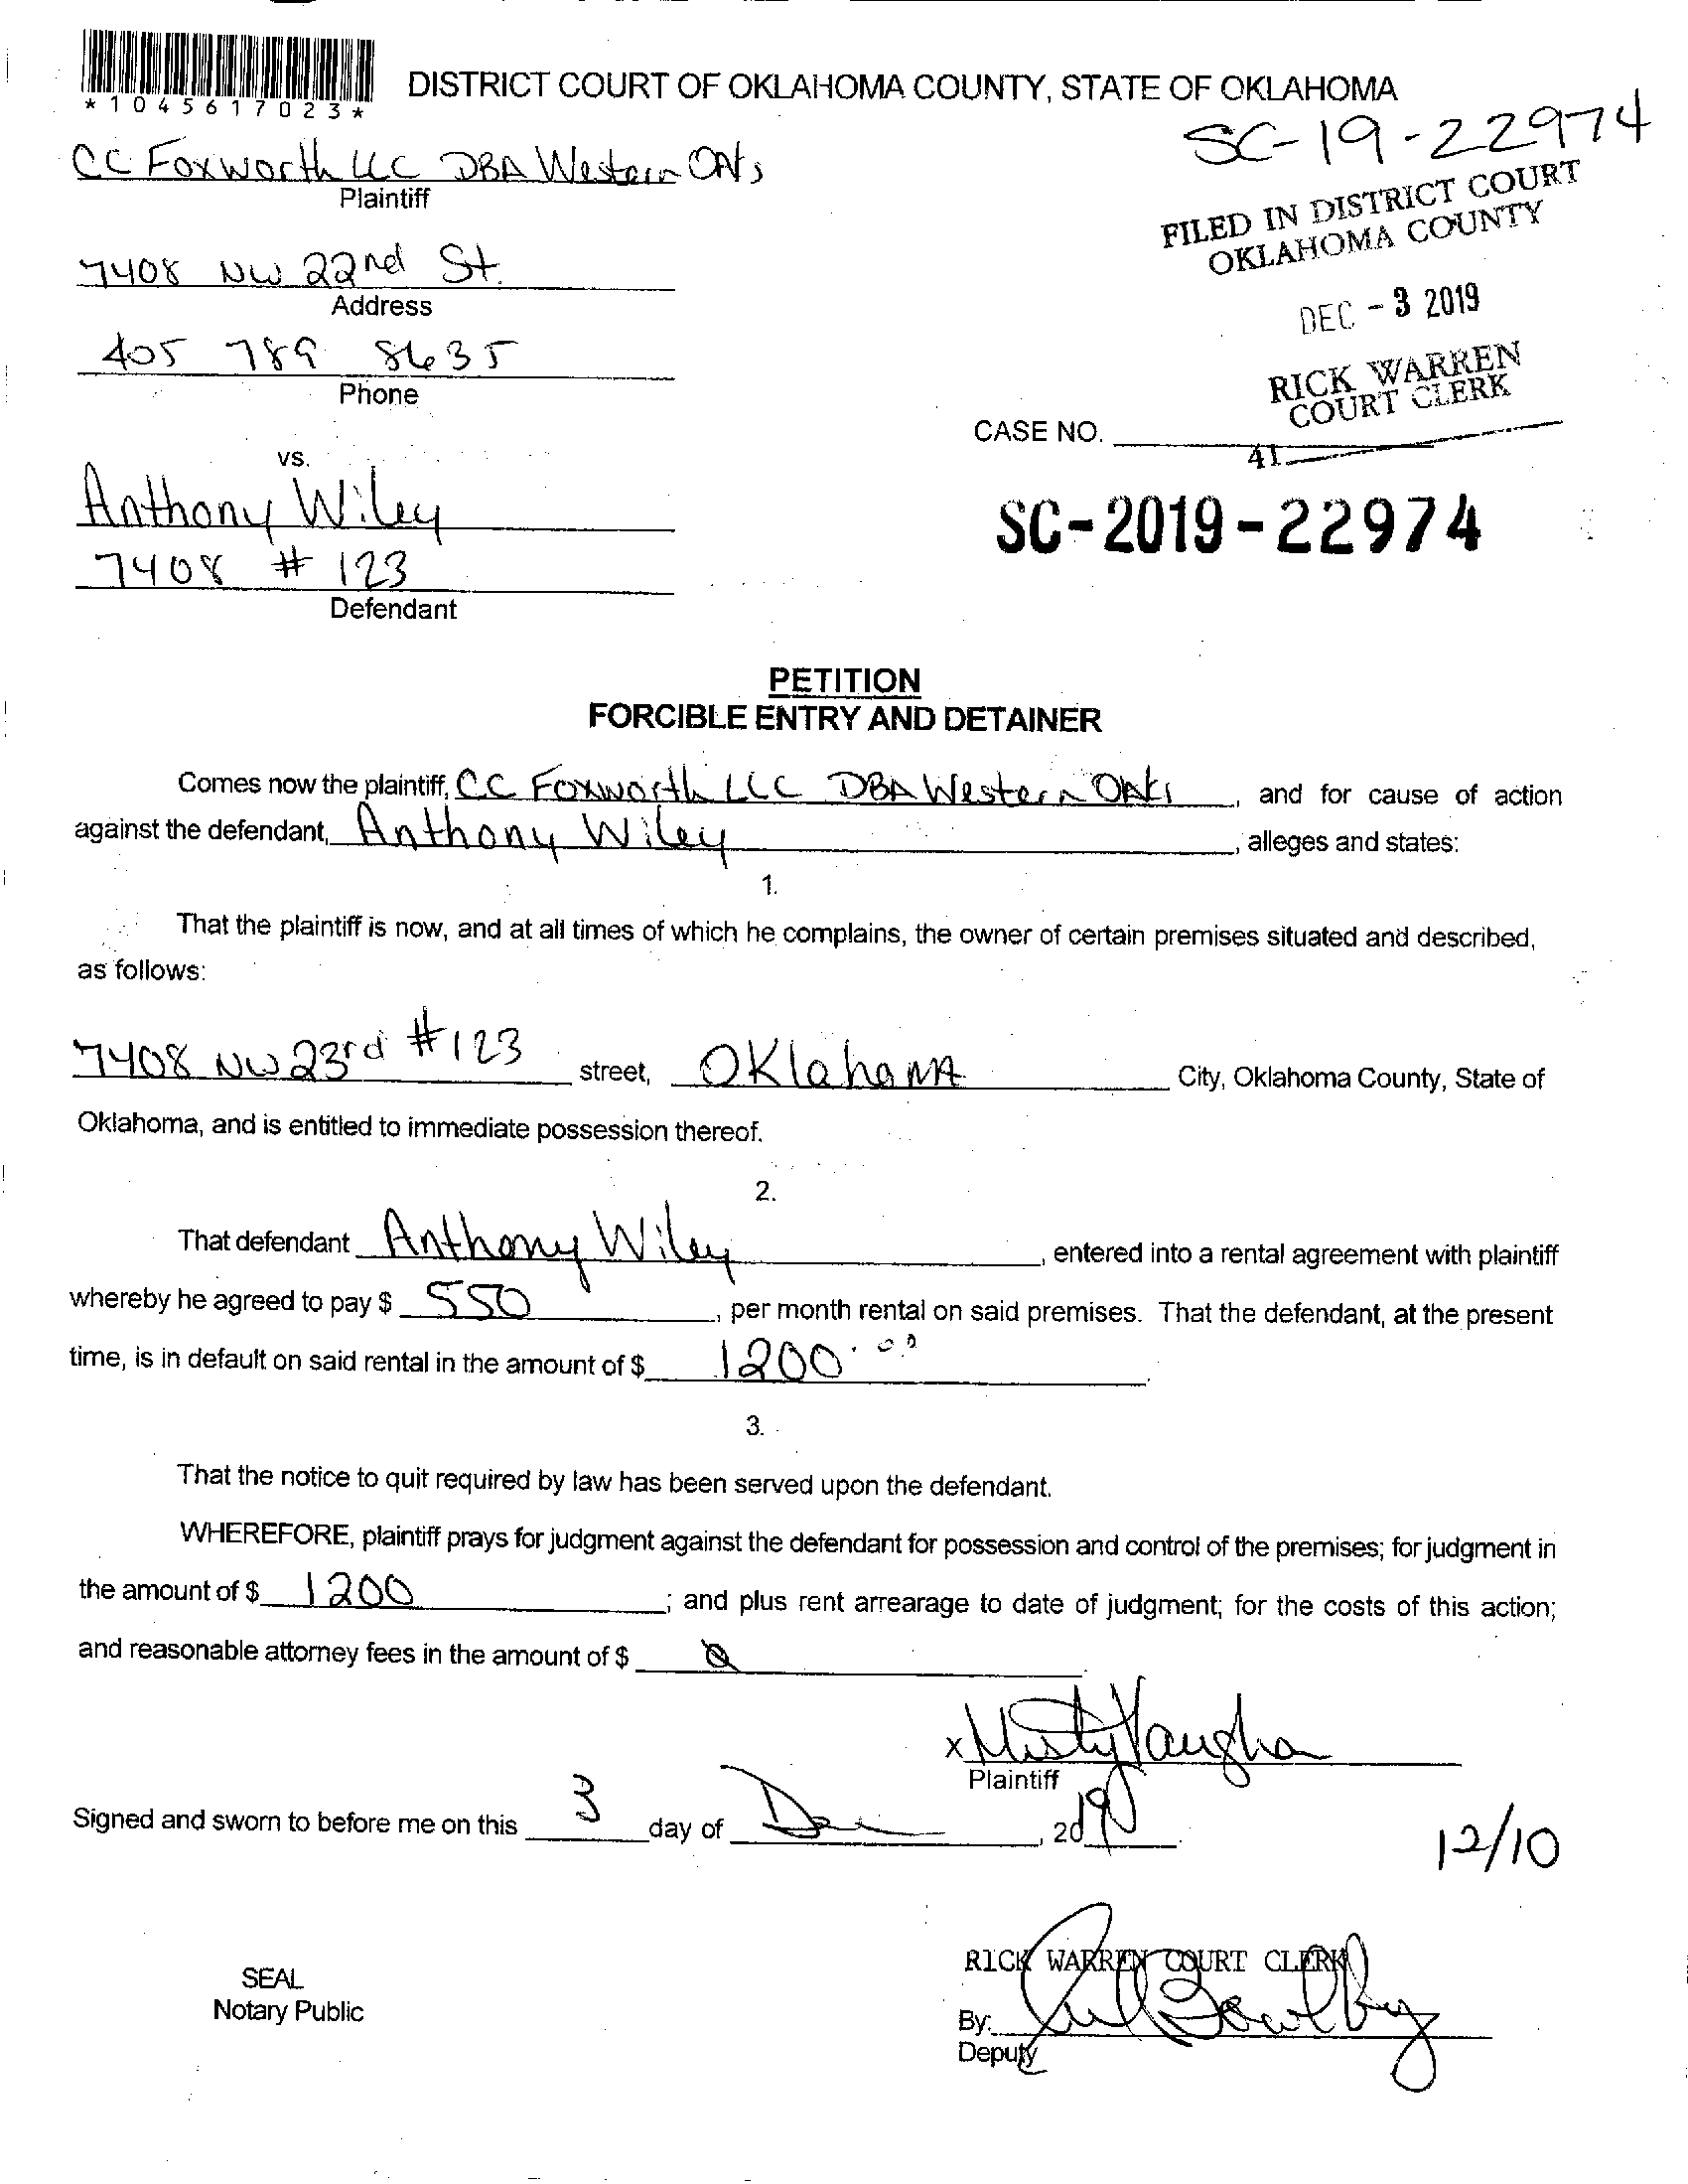 *1045617023*
DISTRICT COURT OF OKLAHOMA COUNTY, STATE OF OKLAHOMA
SC-19-22974
CC Foxworth LLC DBA Western Oaks
Plaintiff
FILED IN DISTRICT COURT
OKLAHOMA COUNTY
7408 NW 22nd St.
Address
DEC - 3 2019
405 789 8635
Phone
RICK WARREN
COURT CLERK
CASE NO.
41
vs.
Anthony Wiley
SC-2019-22974
7408 # 123
Defendant
PETITION
FORCIBLE ENTRY AND DETAINER
Comes now the plaintiff, CC Foxworth LLC DBA Western Oaks, and for cause of action
against the defendant, Anthony Wiley, alleges and states:
1.
That the plaintiff is now, and at all times of which he complains, the owner of certain premises situated and described,
as follows:
7408 NW 23rd #123 street, OKlahoMA City, Oklahoma County, State of
Oklahoma, and is entitled to immediate possession thereof.
2.
That defendant Anthony Wiley, entered into a rental agreement with plaintiff
whereby he agreed to pay $ 550, per month rental on said premises. That the defendant, at the present
time, is in default on said rental in the amount of $ 1200.00.
3.
That the notice to quit required by law has been served upon the defendant.
WHEREFORE, plaintiff prays for judgment against the defendant for possession and control of the premises; for judgment in
the amount of $ 1200; and plus rent arrearage to date of judgment; for the costs of this action;
and reasonable attorney fees in the amount of $ 0.
x Misty Vaughn
Plaintiff
Signed and sworn to before me on this 3 day of Dec, 2019.
12/10
RICK WARREN COURT CLERK
SEAL
Notary Public
By:
Deputy